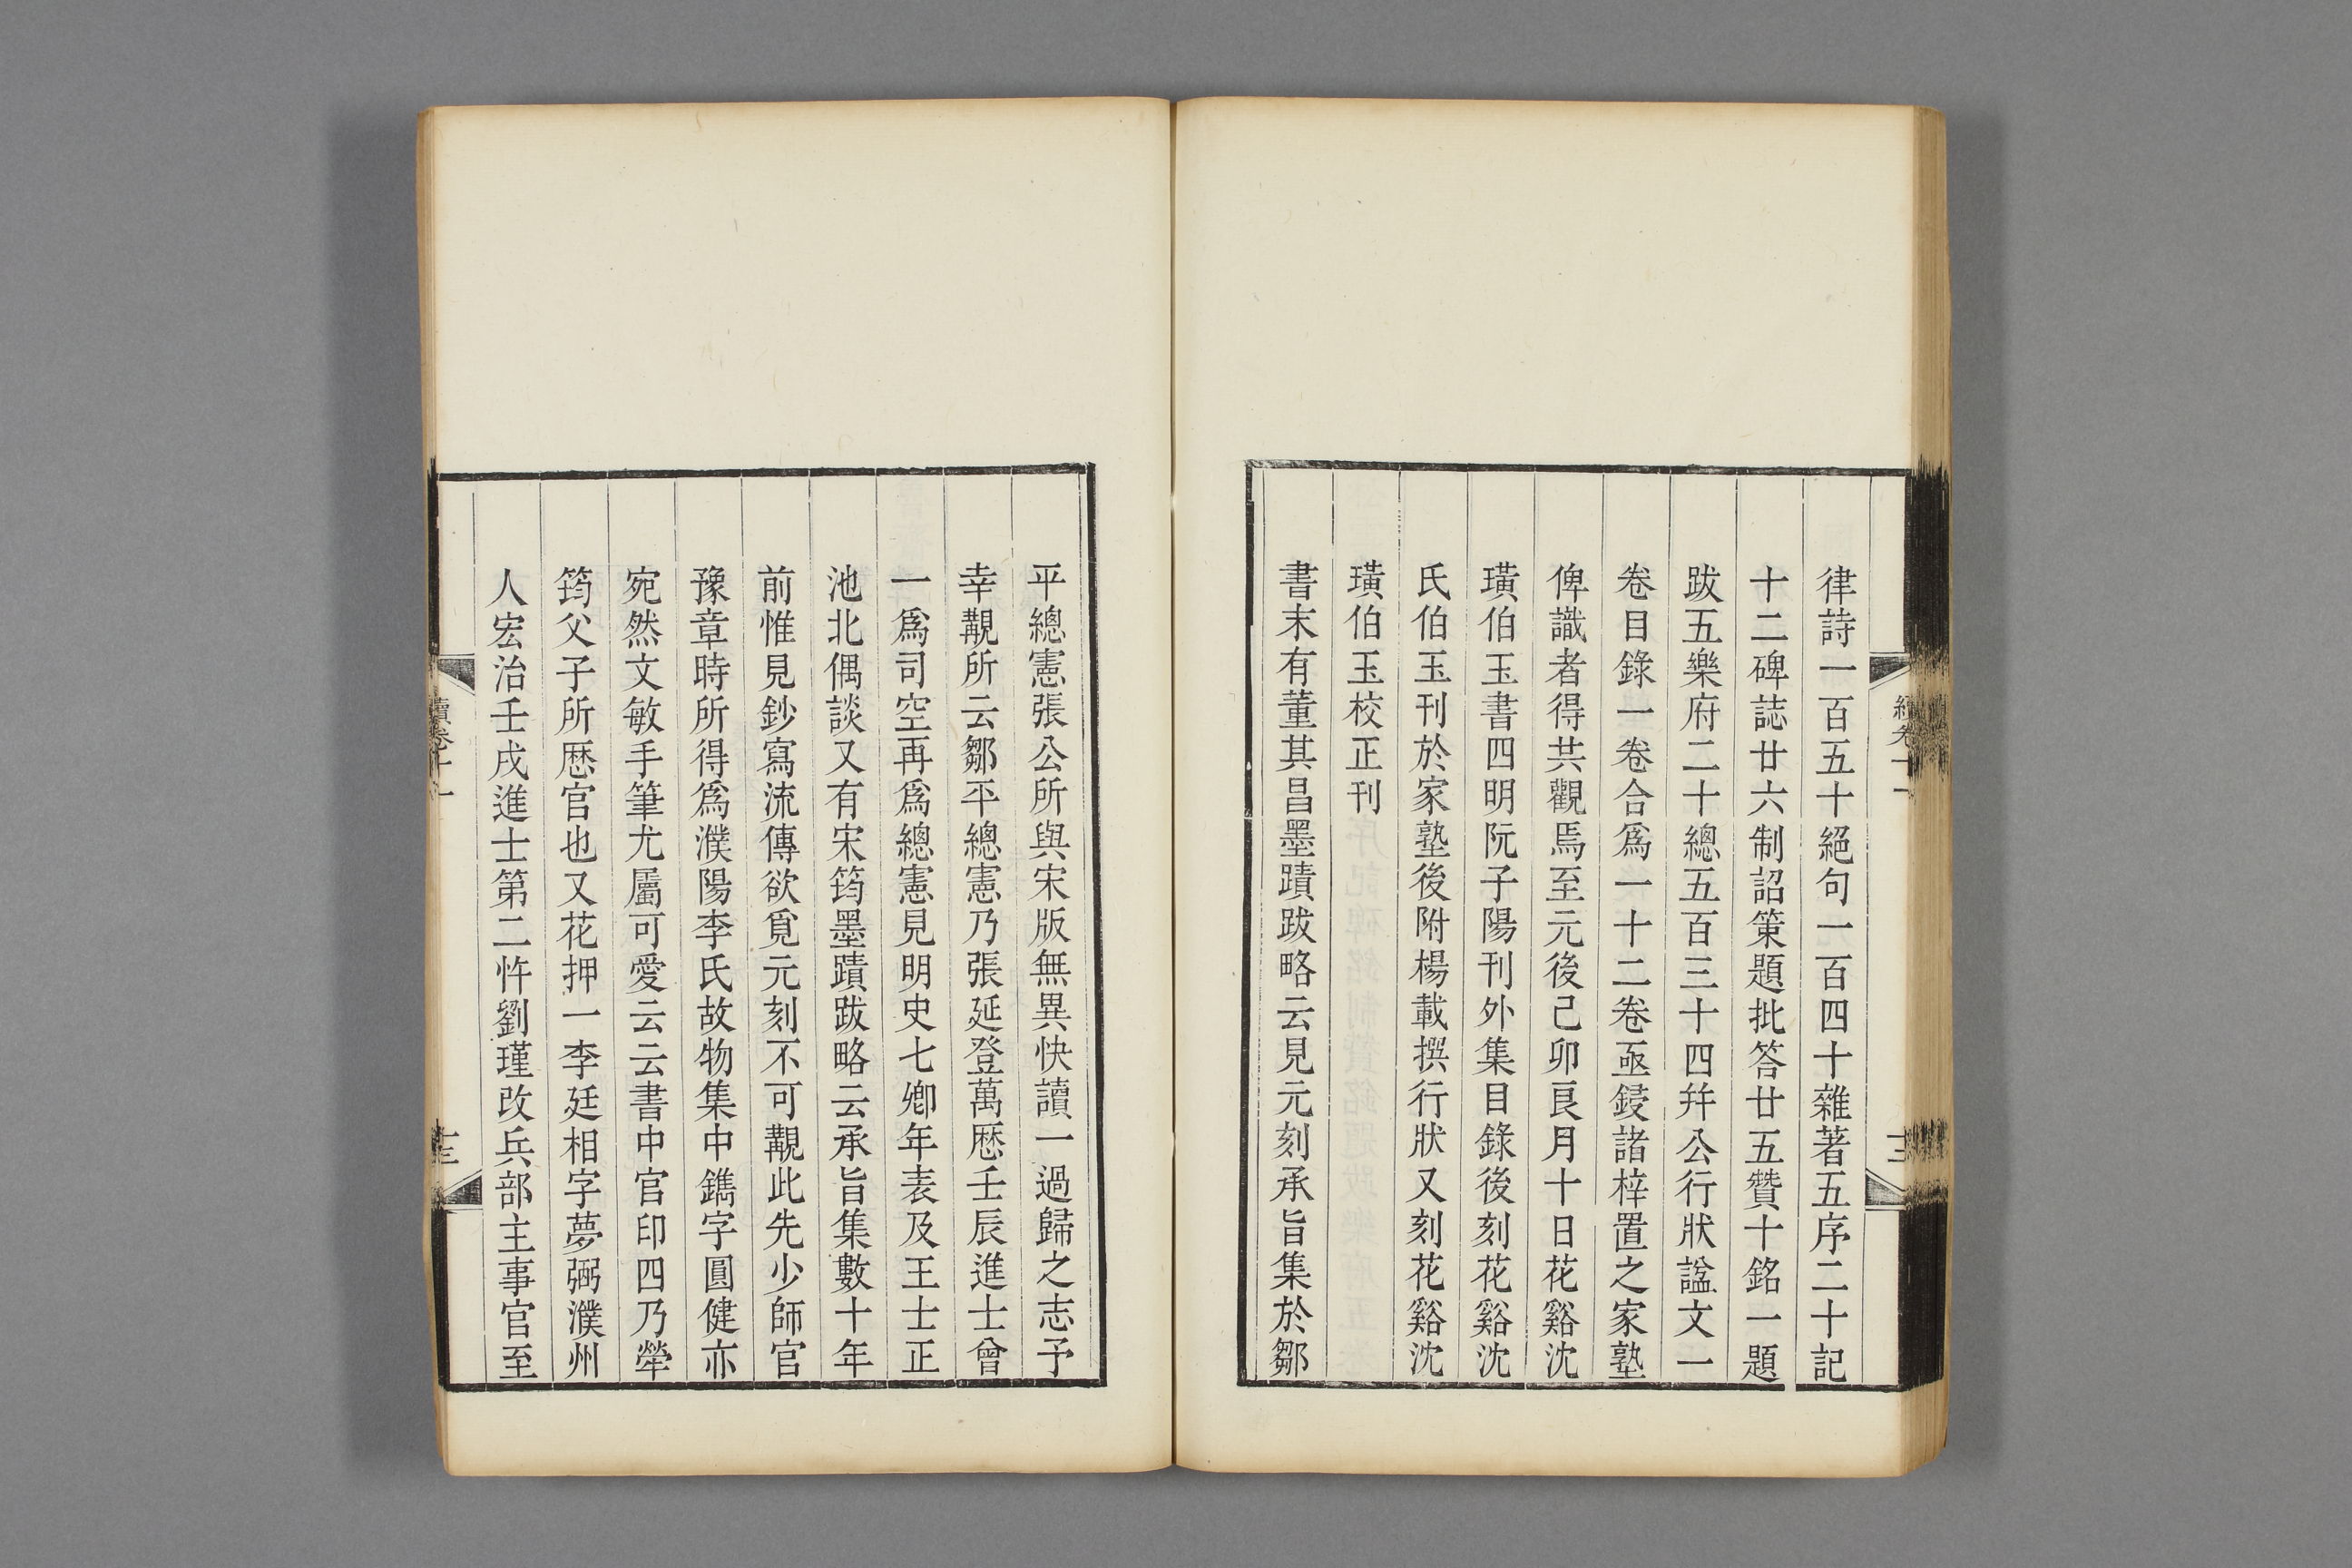 律詩一百五十絕句一百四十雜著五序二十記
十二碑誌廿六制詔策題批答廿五贊十銘一題
跋五樂府二十總五百三十四幷公行狀諡文一
卷目錄一卷合爲一十二卷亟鋟諸梓置之家塾
俾識者得共觀焉至元後己卯良月十日花谿沈
璜伯玉書四明阮子陽刊外集目錄後刻花谿沈
氏伯玉刊於家塾後附楊載撰行狀又刻花谿沈
璜伯玉校正刊
書末有董其昌墨蹟跋略云見元刻承旨集於鄒
平總憲張公所與宋版無異快讀一過歸之志予
幸覯所云鄒平總憲乃張延登萬厯壬辰進士曾
一爲司空再爲總憲見明史七卿年表及王士正
池北偶談又有宋筠墨蹟跋略云承旨集數十年
前惟見鈔寫流傳欲覓元刻不可覯此先少師官
豫章時所得爲濮陽李氏故物集中鐫字圓健亦
宛然文敏手筆尤屬可愛云云書中官印四乃犖
筠父子所厯官也又花押一李廷相字夢弼濮州
人宏治壬戌進士第二忤劉瑾改兵部主事官至
續卷十一
十三